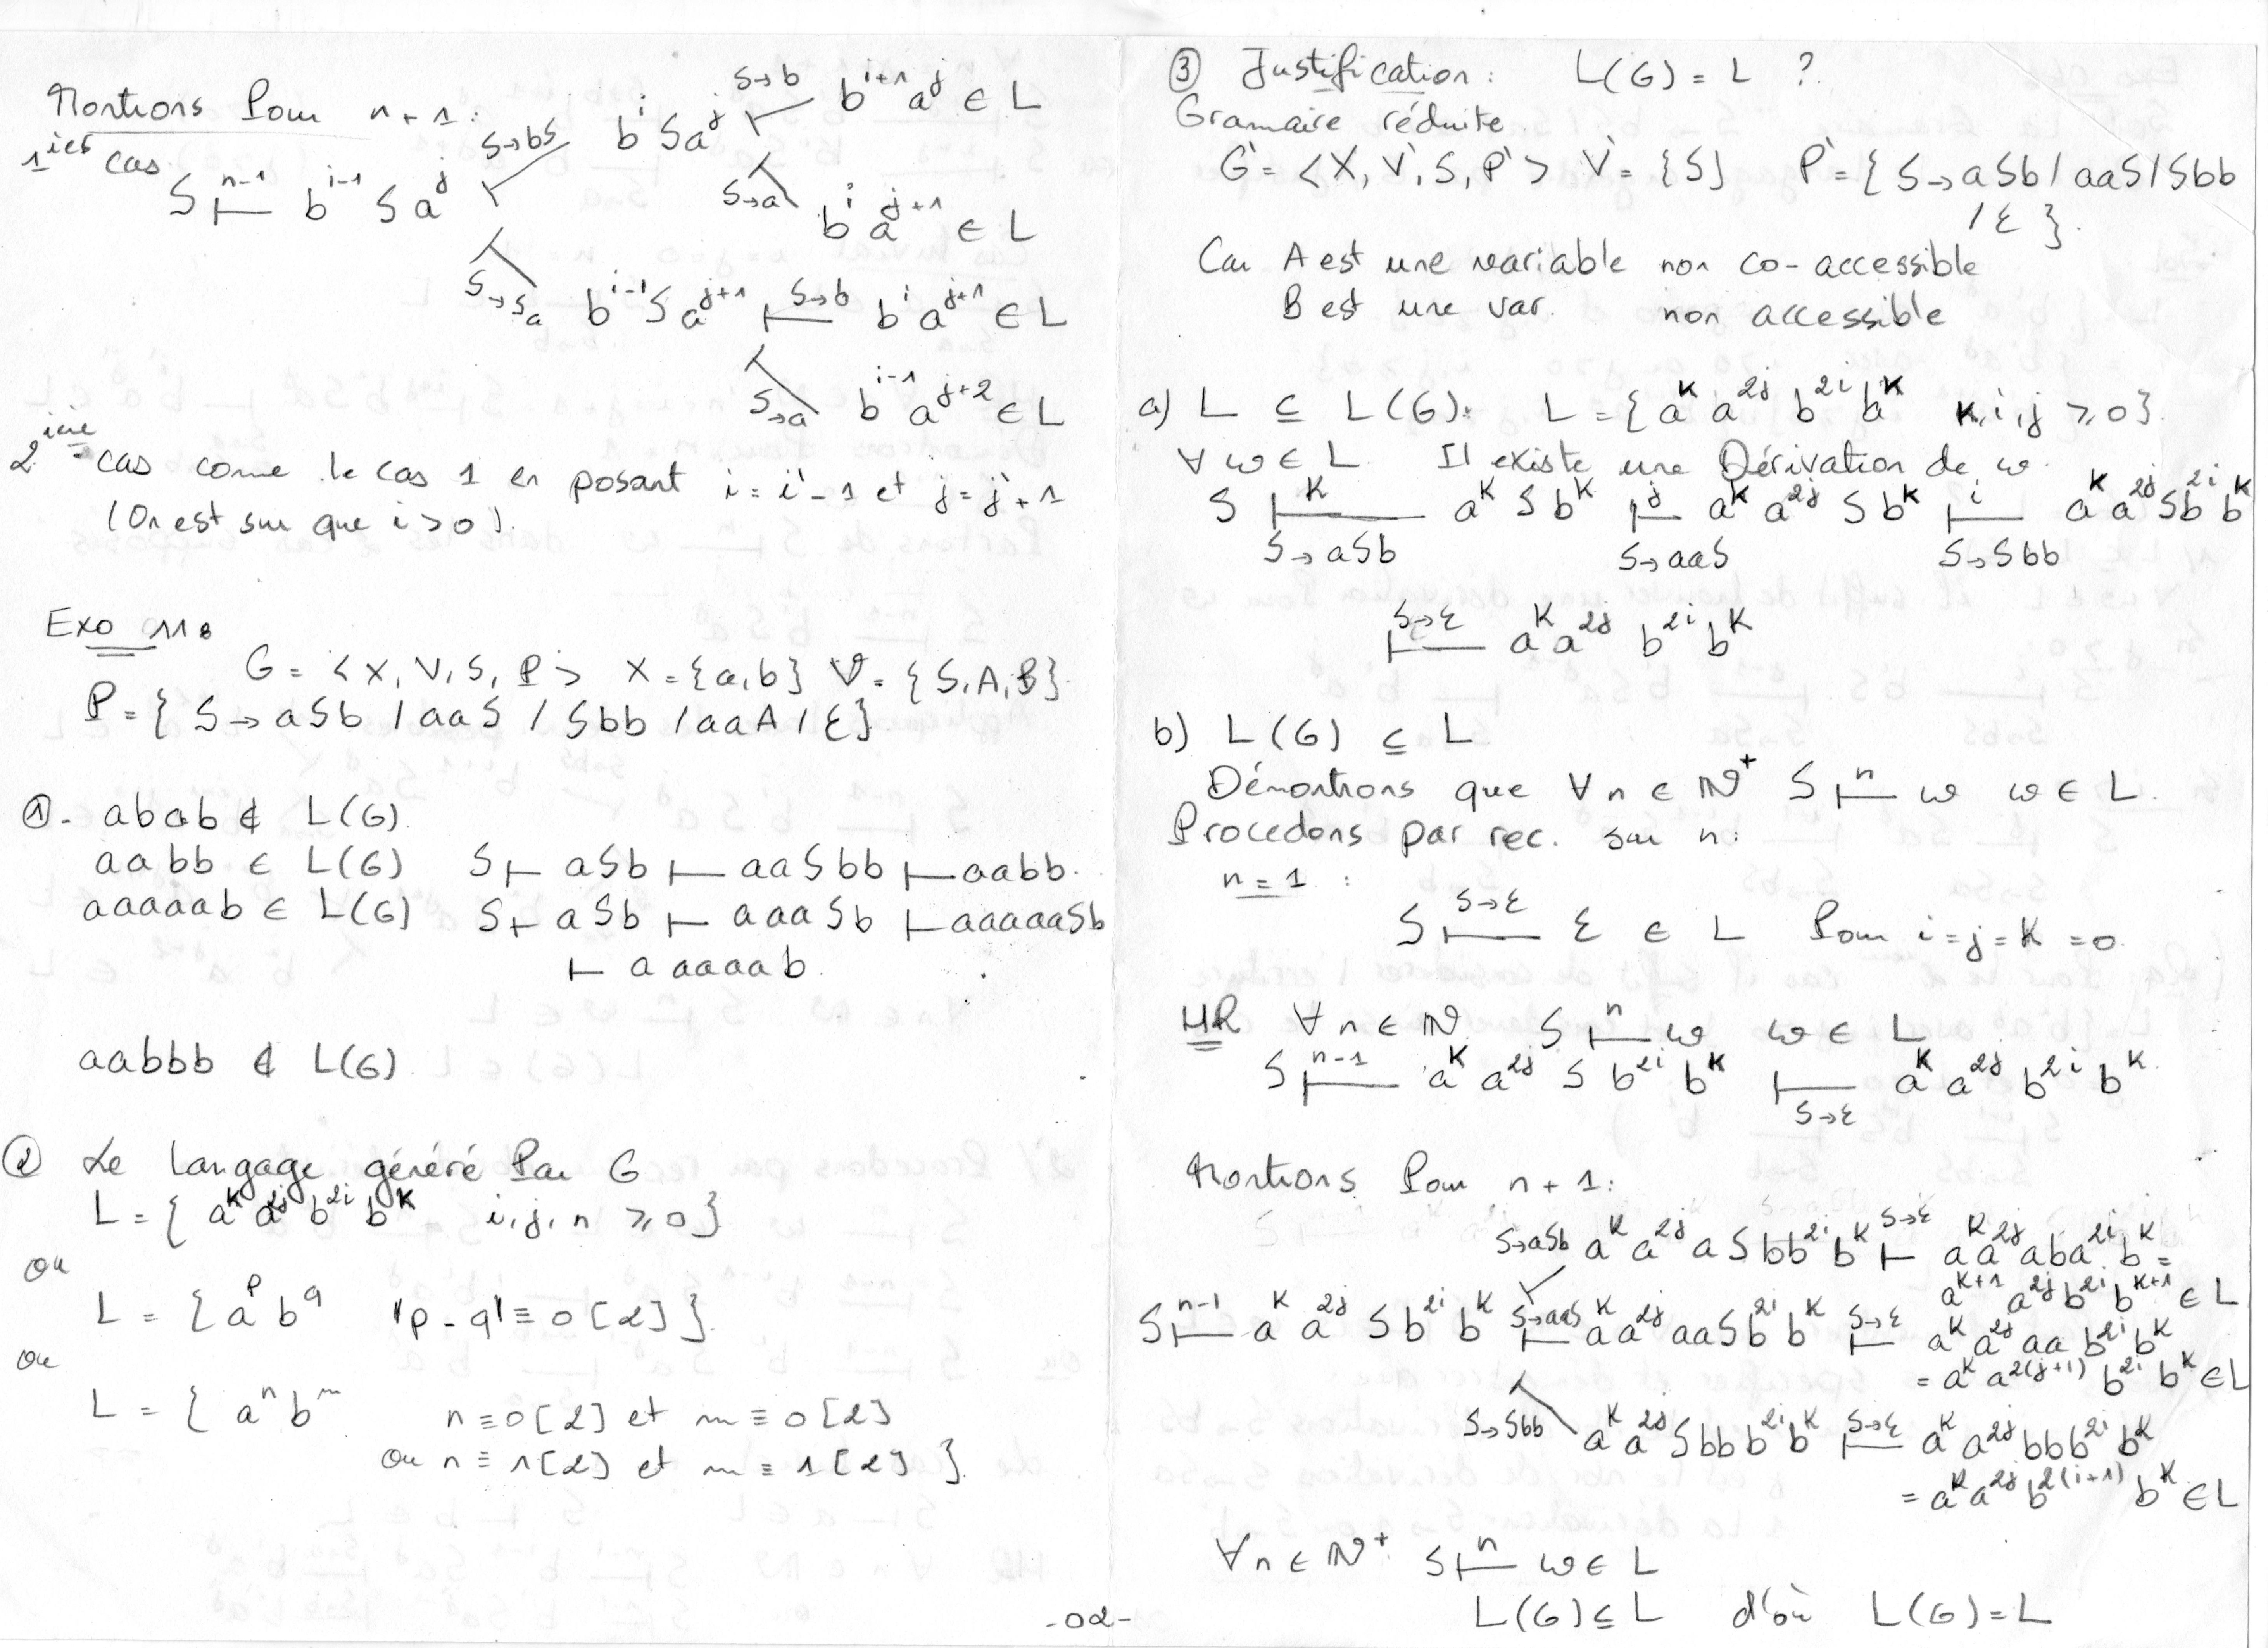 Montrons Pour n+1:
1ier cas
S ⊢^{n-1} b^{i-1} S a^j ⊢^{S→bS} b^i S a^j ⊢^{S→b} b^{i+1} a^j ∈ L
⊢_{S→a} b^i a^{j+1} ∈ L
⊢_{S→Sa} b^{i-1} S a^{j+1} ⊢^{S→b} b^i a^{j+1} ∈ L
⊢_{S→a} b^{i-1} a^{j+2} ∈ L
2ième cas come le cas 1 en posant i = i'-1 et j = j'+1
(On est sur que i>0).
Exo 11:
G = <X, V, S, P> X = {a,b} V = {S,A,B}
P = { S → aSb / aaS / Sbb / aaA / ε}
① - abab ∉ L(G)
aabb ∈ L(G) S ⊢ aSb ⊢ aaSbb ⊢ aabb.
aaaaab ∈ L(G) S ⊢ aSb ⊢ aaaSb ⊢ aaaaaSb
⊢ aaaaab.
aabbb ∉ L(G)
② Le langage généré Par G
L = { a^k a^{2j} b^{2i} b^k i,j,n ≥ 0}
ou
L = { a^p b^q |p-q| ≡ 0 [2] }
ou
L = { a^n b^m n ≡ 0[2] et m ≡ 0[2]
ou n ≡ 1[2] et m ≡ 1[2] }
③ Justification: L(G) = L ?
Gramaire réduite
G' = <X, V', S, P'> V' = {S} P' = { S → aSb / aaS / Sbb
/ ε }.
Car A est une variable non co-accessible
B est une var. non accessible
a) L ⊆ L(G): L = { a^k a^{2j} b^{2i} b^k k,i,j ≥ 0}.
∀ ω ∈ L Il existe une Dérivation de ω
S ⊢^k_{S→aSb} a^k S b^k ⊢^j_{S→aaS} a^k a^{2j} S b^k ⊢^i_{S→Sbb} a^k a^{2j} S b^{2i} b^k
⊢^{S→ε} a^k a^{2j} b^{2i} b^k
b) L(G) ⊆ L
Démontrons que ∀ n ∈ ℕ^+ S ⊢^n ω ω ∈ L.
Procedons par rec. sur n:
n = 1 :
S ⊢^{S→ε} ε ∈ L Pour i=j=k=0
HR ∀ n ∈ ℕ S ⊢^n ω ω ∈ L
S ⊢^{n-1} a^k a^{2j} S b^{2i} b^k ⊢_{S→ε} a^k a^{2j} b^{2i} b^k
Montrons Pour n+1:
S→aSb a^k a^{2j} aSb b^{2i} b^k ⊢^{S→ε} a^k a^{2j} aba^{2i} b^k =
a^{k+1} a^{2j} b^{2i} b^{k+1} ∈ L
S ⊢^{n-1} a^k a^{2j} S b^{2i} b^k ⊢^{S→aaS} a^k a^{2j} aaS b^{2i} b^k ⊢^{S→ε} a^k a^{2j} aa b^{2i} b^k
= a^k a^{2(j+1)} b^{2i} b^k ∈ L
S→Sbb a^k a^{2j} Sbb b^{2i} b^k ⊢^{S→ε} a^k a^{2j} bb b^{2i} b^k
= a^k a^{2j} b^{2(i+1)} b^k ∈ L
∀ n ∈ ℕ^+ S ⊢^n ω ∈ L
L(G) ⊆ L d'où L(G) = L
-02-